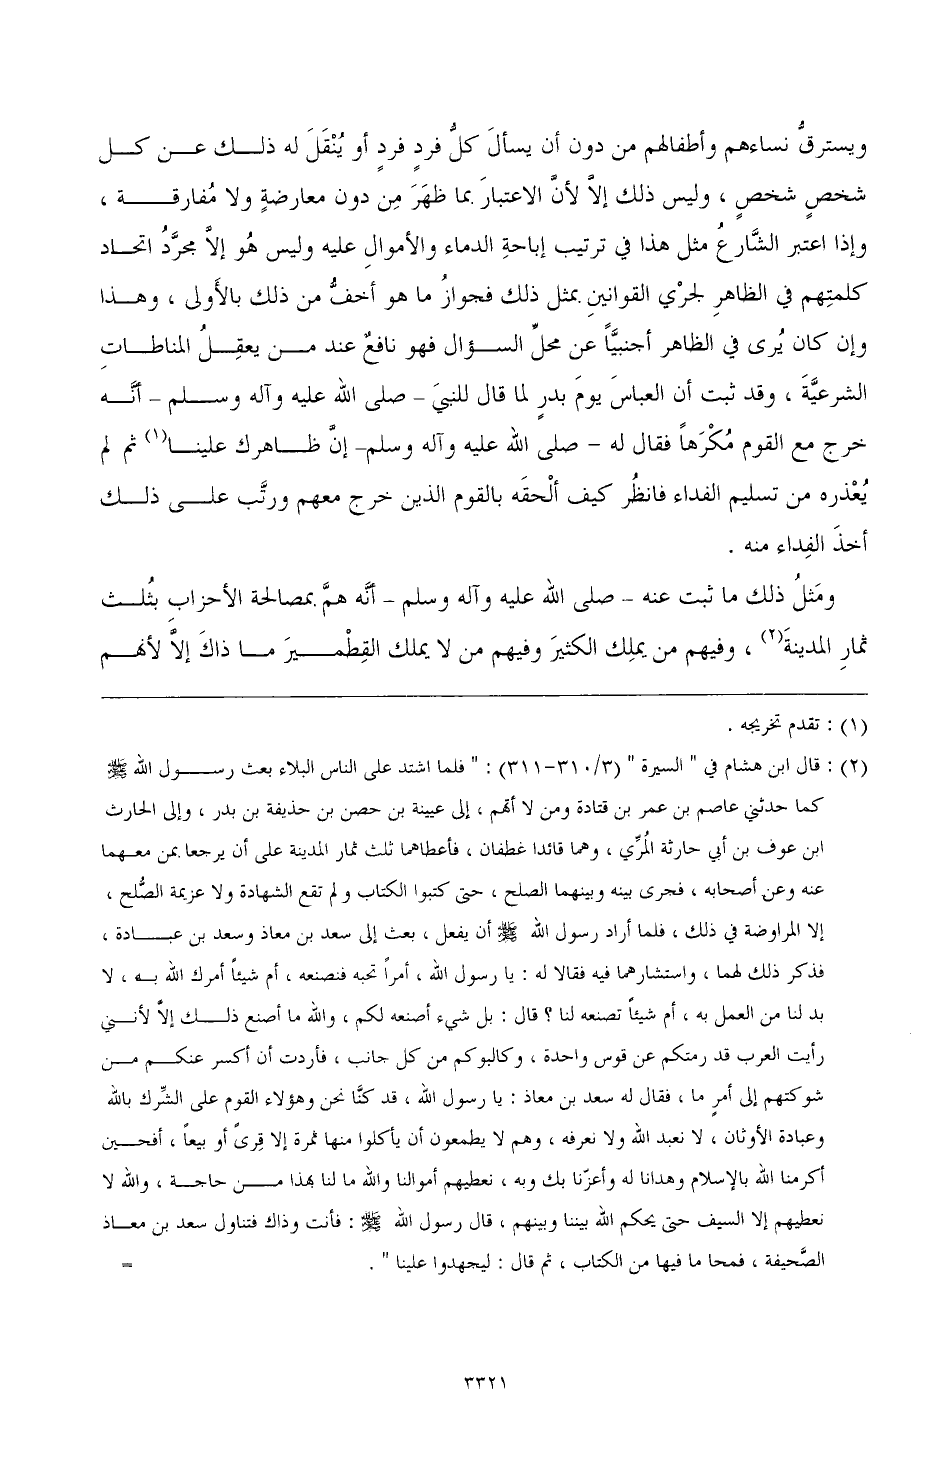 ويسترقُّ نساءهم وأطفالهم من دون أن يسألَ كلُّ فردٍ فردٍ أو يُنْقَلَ له ذلك عن كل
شخصٍ شخصٍ ، وليس ذلك إلاَّ لأنَّ الاعتبارَ بما ظهَرَ مِن دون معارضةٍ ولا مُفارقة ،
وإذا اعتبر الشَّارعُ مثل هذا في ترتيب إباحةِ الدماء والأموالِ عليه وليس هُو إلاَّ مجرَّدُ اتحاد
كلمتِهم في الظاهرِ لجرْي القوانينِ بمثل ذلك فجوازُ ما هو أخفُّ من ذلك بالأَولى ، وهذا
وإن كان يُرى في الظاهر أجنبيَّاً عن محلِّ السؤال فهو نافعٌ عند من يعقِلُ المناطاتِ
الشرعيَّةَ ، وقد ثبت أن العباسَ يومَ بدرٍ لما قال للنبيَ - صلى الله عليه وآله وسلم - أنَّه
خرج مع القوم مُكْرَهاً فقال له - صلى الله عليه وآله وسلم- إنَّ ظاهرك علينا(١) ثم لم
يُعْذره من تسليم الفداء فانظُر كيف ألْحقَه بالقوم الذين خرج معهم ورتَّب على ذلك
أخذَ الفِداء منه .
ومَثلُ ذلك ما ثبت عنه - صلى الله عليه وآله وسلم - أنَّه همَّ بمصالحة الأحزابِ بثُلث
ثمارِ المدينةَ(٢) ، وفيهم من يملِك الكثيرَ وفيهم من لا يملك القِطْميرَ ما ذاكَ إلاَّ لأنهم
(١) : تقدم تخريجه .
(٢) : قال ابن هشام في " السيرة " (٣١٠/٣-٣١١) : " فلما اشتد على الناس البلاء بعث رسول الله ﷺ
كما حدثني عاصم بن عمر بن قتادة ومن لا أتهم ، إلى عيينة بن حصن بن حذيفة بن بدر ، وإلى الحارث
ابن عوف بن أبي حارثة المُرِّي ، وهما قائدا غطفان ، فأعطاهما ثلث ثمار المدينة على أن يرجعا بمن معهما
عنه وعن أصحابه ، فجرى بينه وبينهما الصلح ، حتى كتبوا الكتاب و لم تقع الشهادة ولا عزيمة الصُّلح ،
إلا المراوضة في ذلك ، فلما أراد رسول الله ﷺ أن يفعل ، بعث إلى سعد بن معاذ وسعد بن عبادة ،
فذكر ذلك لهما ، واستشارهما فيه فقالا له : يا رسول الله ، أمراً تحبه فنصنعه ، أم شيئاً أمرك الله به ، لا
بد لنا من العمل به ، أم شيئاً تصنعه لنا ؟ قال : بل شيء أصنعه لكم ، والله ما أصنع ذلك إلاَّ لأنني
رأيت العرب قد رمتكم عن قوس واحدة ، وكالبوكم من كل جانب ، فأردت أن أكسر عنكم من
شوكتهم إلى أمرٍ ما ، فقال له سعد بن معاذ : يا رسول الله ، قد كنَّا نحن وهؤلاء القوم على الشِّرك بالله
وعبادة الأوثان ، لا نعبد الله ولا نعرفه ، وهم لا يطمعون أن يأكلوا منها ثمرة إلا قِرىً أو بيعاً ، أفحين
أكرمنا الله بالإسلام وهدانا له وأعزّنا بك وبه ، نعطيهم أموالنا والله ما لنا بهذا من حاجة ، والله لا
نعطيهم إلا السيف حتى يحكم الله بيننا وبينهم ، قال رسول الله ﷺ : فأنت وذاك فتناول سعد بن معاذ
الصَّحيفة ، فمحا ما فيها من الكتاب ، ثم قال : ليجهدوا علينا " . =
٣٣٢١